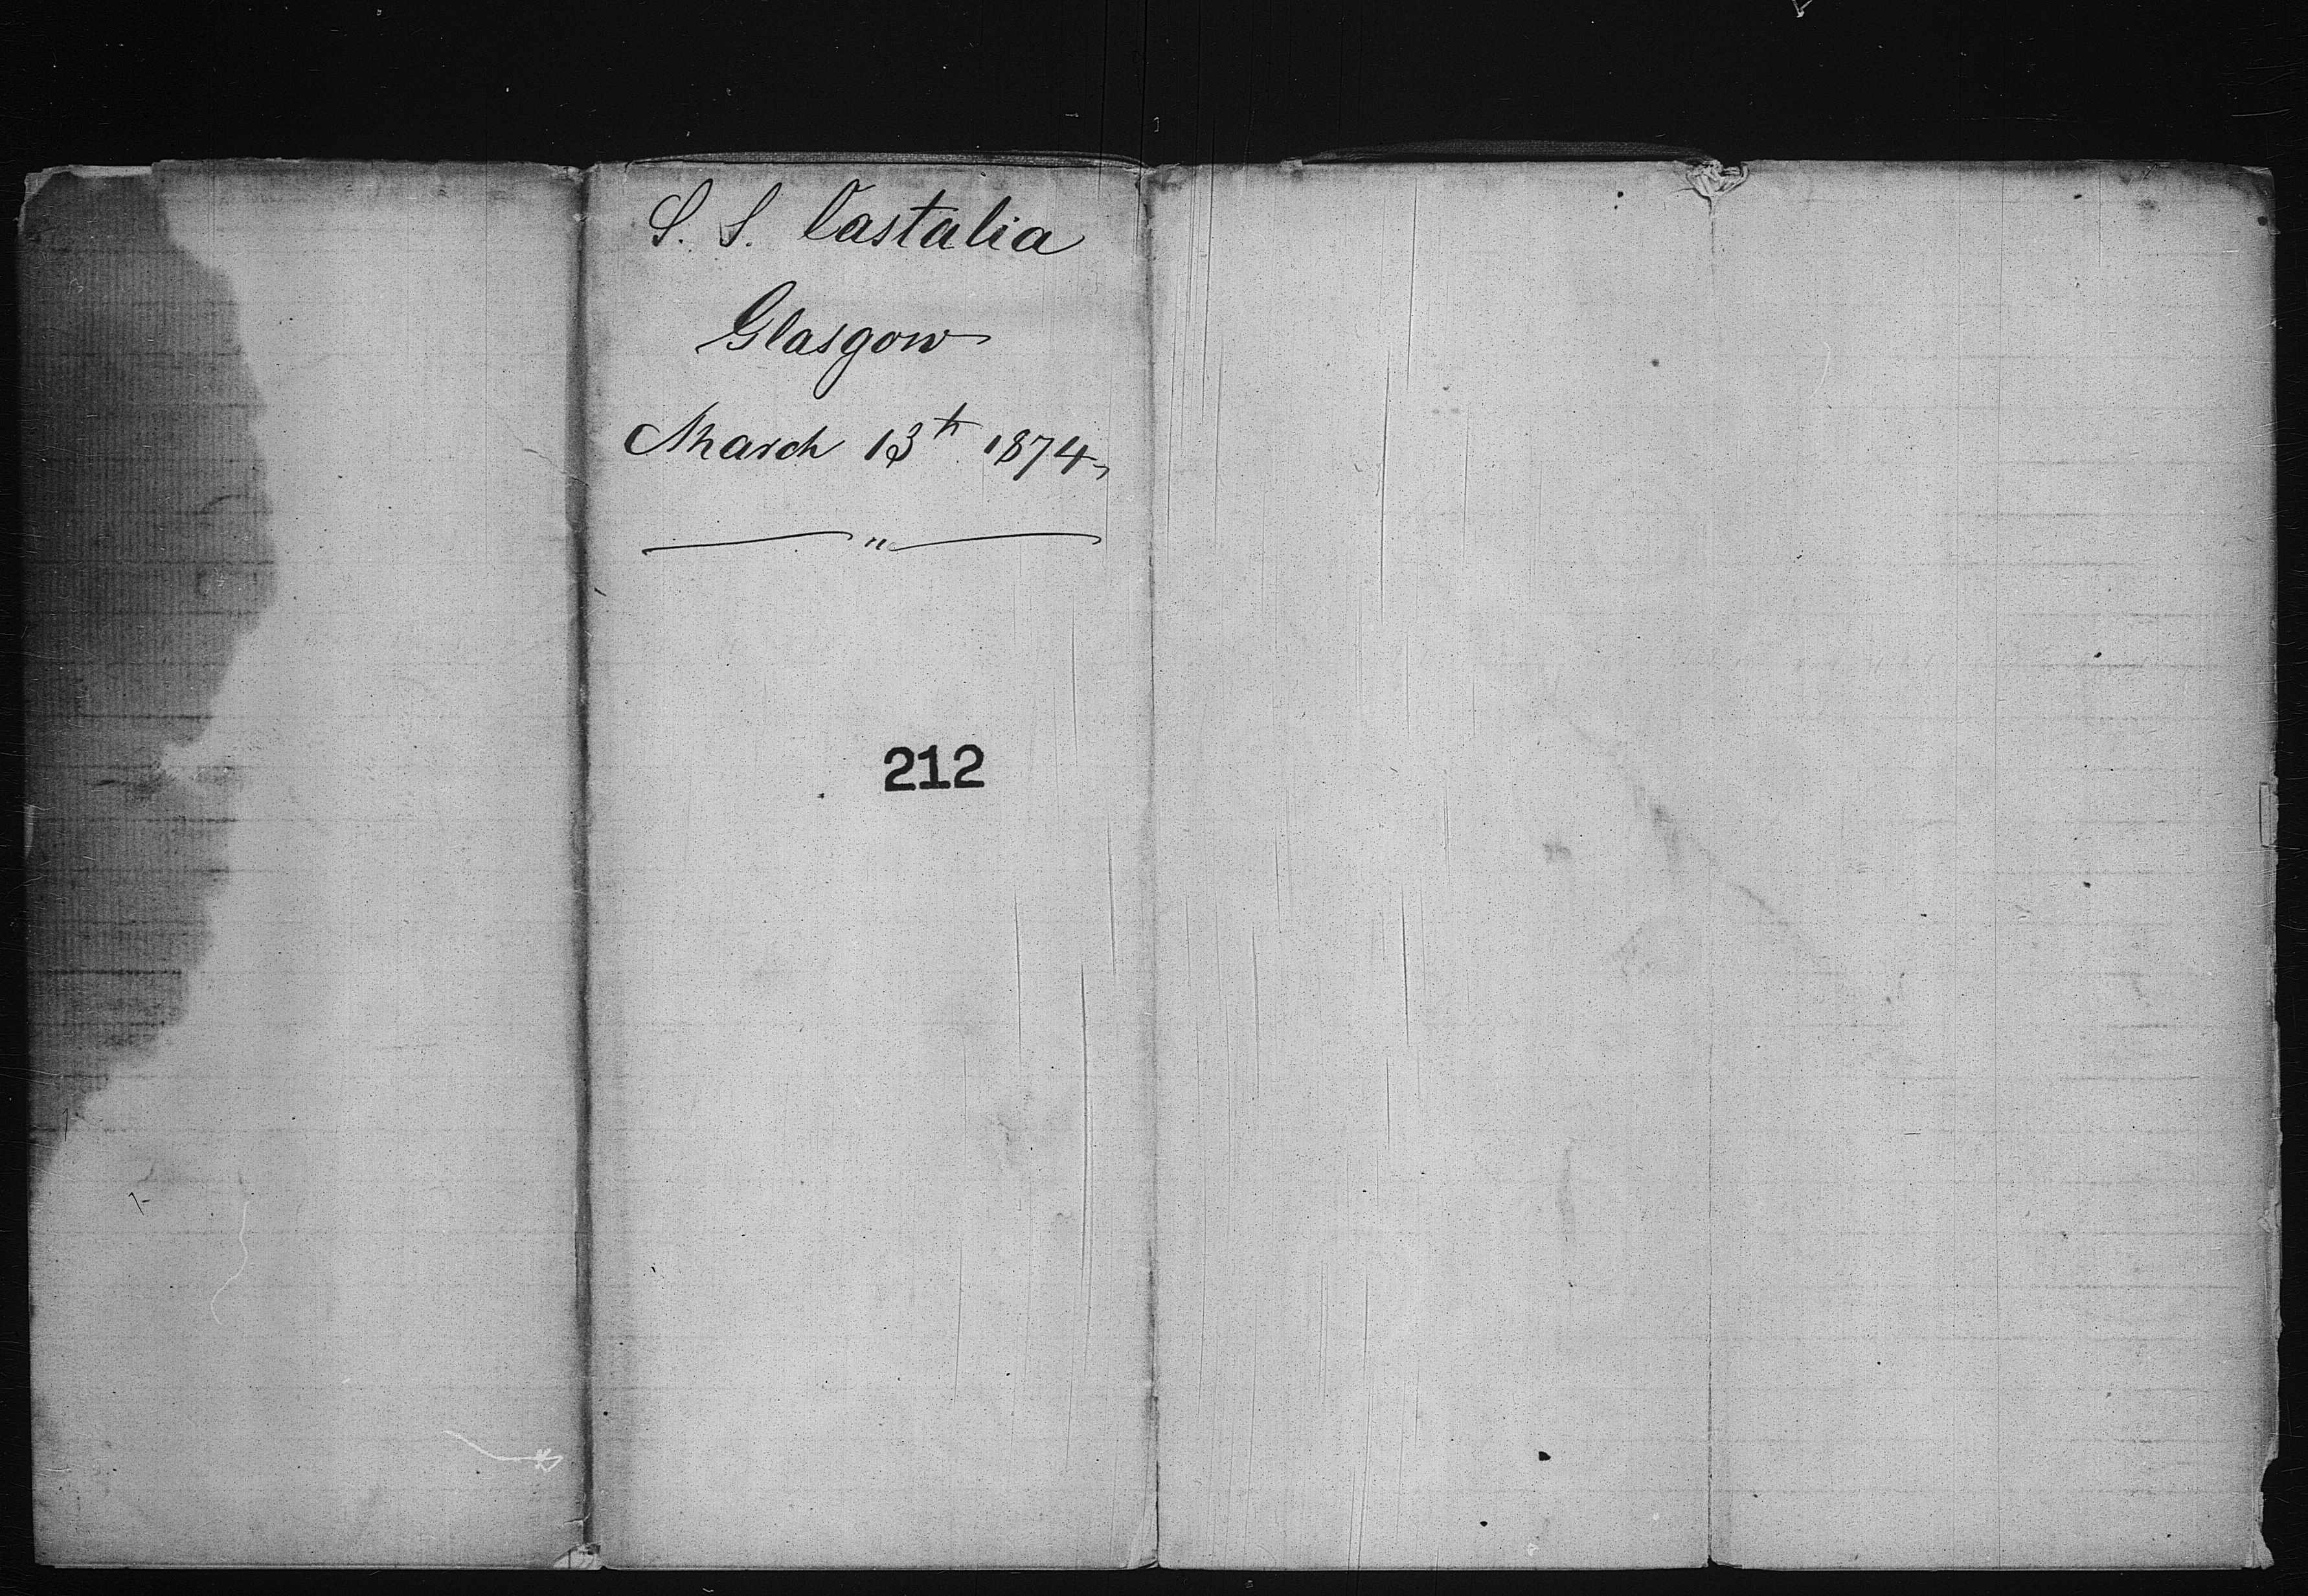 S. S. Castalia
Glasgow
March 13th 1874
212